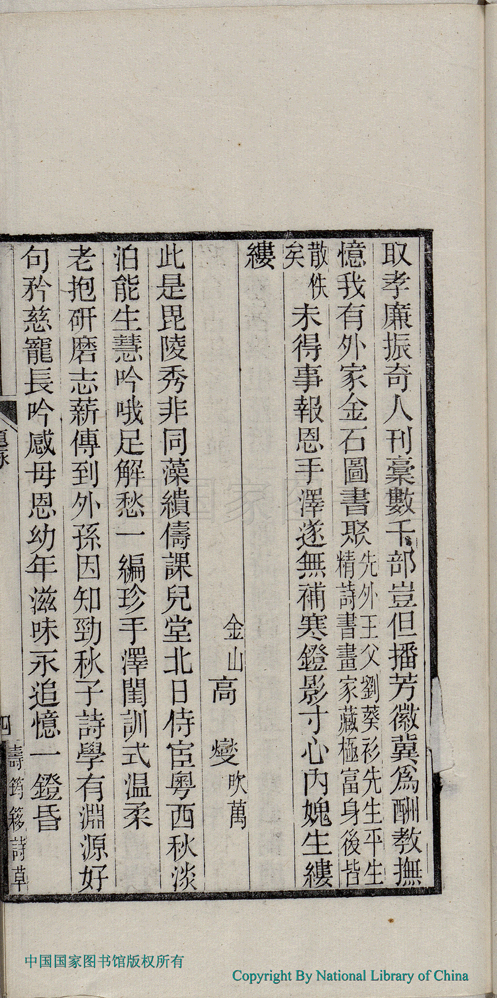 取孝廉振奇人刊稾數千部豈但播芳徽冀爲酬教撫
憶我有外家金石圖書聚先外王父劉葵衫先生平生
精詩書畫家藏極富身後皆
散佚
矣
未得事報恩手澤遂無補寒鐙影寸心內媿生縷
縷
金山高燮吹萬
此是毘陵秀非同藻繢儔課兒堂北日侍宦粵西秋淡
泊能生慧吟哦足解愁一編珍手澤閨訓式温柔
老抱研磨志薪傳到外孫因知勁秋子詩學有淵源好
句矜慈寵長吟感母恩幼年滋味永追憶一鐙昏
題詠
四
壽筠簃詩草
中国国家图书馆版权所有
Copyright By National Library of China